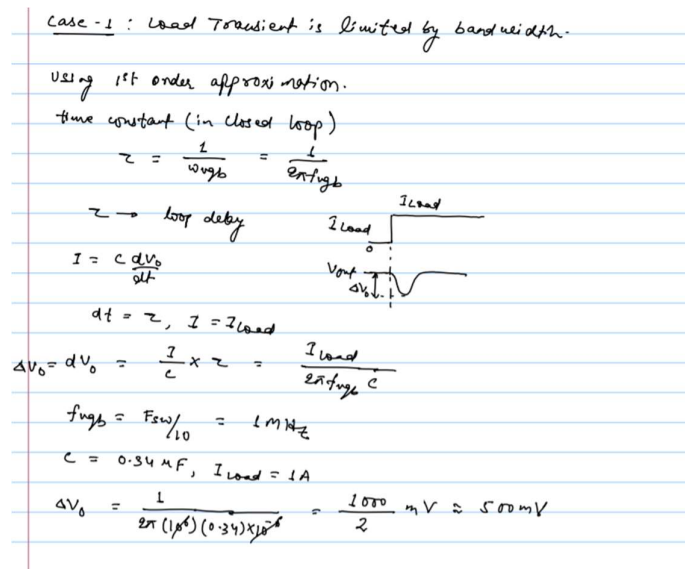 Case-1 : Load Transient is limited by bandwidth.
Using 1st order approximation.
time constant (in closed loop)
τ = 1/ωugb = 1/2πfugb
τ → loop delay
ILoad
ILoad
0
I = C dVo/dt
Vout
ΔVo
dt = τ, I = ILoad
ΔVo = dVo = I/C × τ = ILoad/2πfugb C
fugb = Fsw/10 = 1MHz
C = 0.34 μF, ILoad = 1A
ΔVo = 1/2π(10^6)(0.34)×10^-6 = 1000/2 mV ≈ 500mV